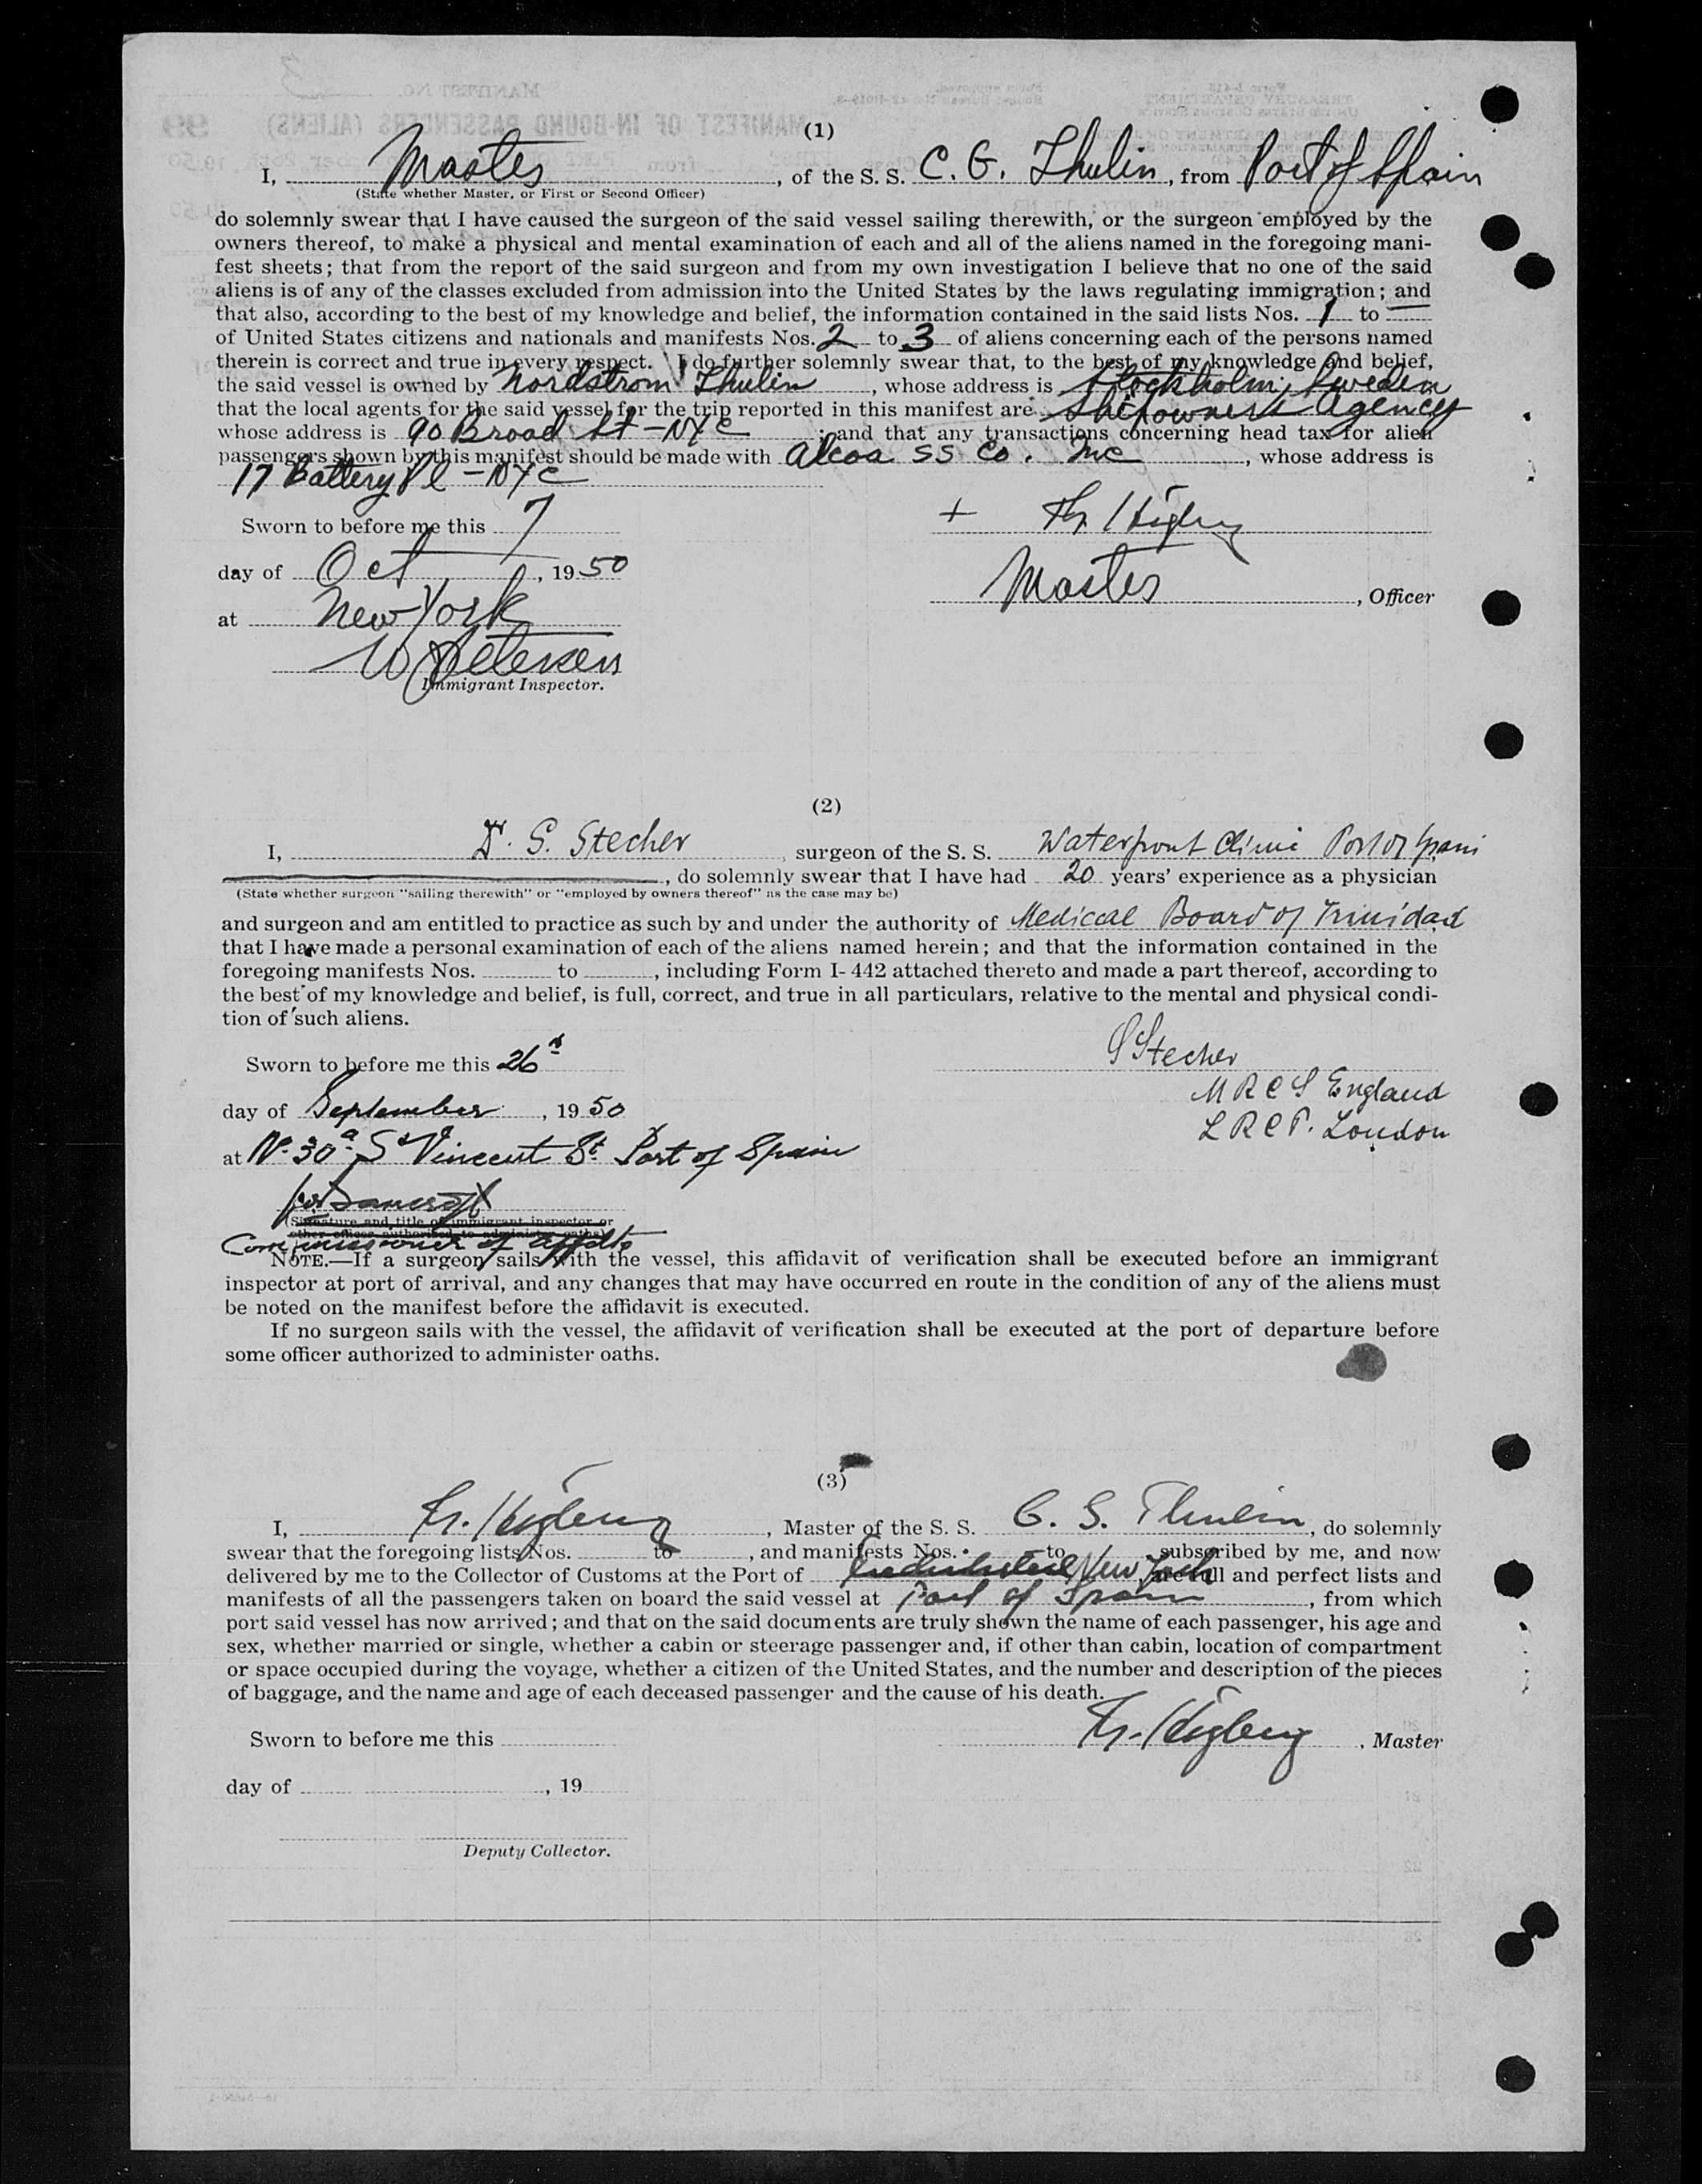 (1)
I, Master, of the S. S. C. G. Thulin, from Port of Spain
(State whether Master, or First or Second Officer)
do solemnly swear that I have caused the surgeon of the said vessel sailing therewith, or the surgeon employed by the
owners thereof, to make a physical and mental examination of each and all of the aliens named in the foregoing mani-
fest sheets; that from the report of the said surgeon and from my own investigation I believe that no one of the said
aliens is of any of the classes excluded from admission into the United States by the laws regulating immigration; and
that also, according to the best of my knowledge and belief, the information contained in the said lists Nos. 1 to —
of United States citizens and nationals and manifests Nos. 2 to 3 of aliens concerning each of the persons named
therein is correct and true in every respect. I do further solemnly swear that, to the best of my knowledge and belief,
the said vessel is owned by Nordstrom Thulin, whose address is Stockholm, Sweden
that the local agents for the said vessel for the trip reported in this manifest are Shipowners Agency
whose address is 90 Broad St - NYC; and that any transactions concerning head tax for alien
passengers shown by this manifest should be made with Alcoa SS Co. Inc, whose address is
17 Battery Pl - NYC
Sworn to before me this 7
+
day of Oct, 1950
Master, Officer
at New York
W Petersen
Immigrant Inspector.
(2)
I, Dr. S. Stecher, surgeon of the S. S. Waterfront Clinic Port of Spain
, do solemnly swear that I have had 20 years' experience as a physician
(State whether surgeon "sailing therewith" or "employed by owners thereof" as the case may be)
and surgeon and am entitled to practice as such by and under the authority of Medical Board of Trinidad
that I have made a personal examination of each of the aliens named herein; and that the information contained in the
foregoing manifests Nos. to , including Form I-442 attached thereto and made a part thereof, according to
the best of my knowledge and belief, is full, correct, and true in all particulars, relative to the mental and physical condi-
tion of such aliens.
S Stecher
Sworn to before me this 26
MRCS England
day of September, 1950
LRCP. London
at No. 30a St Vincent St. Port of Spain
(Signature and title of immigrant inspector or
other officer authorized to administer oaths)
Commissioner of Affdts
NOTE.—If a surgeon sails with the vessel, this affidavit of verification shall be executed before an immigrant
inspector at port of arrival, and any changes that may have occurred en route in the condition of any of the aliens must
be noted on the manifest before the affidavit is executed.
If no surgeon sails with the vessel, the affidavit of verification shall be executed at the port of departure before
some officer authorized to administer oaths.
(3)
I, , Master of the S. S. C. G. Thulin, do solemnly
swear that the foregoing lists Nos. to , and manifests Nos. to subscribed by me, and now
delivered by me to the Collector of Customs at the Port of New York are full and perfect lists and
manifests of all the passengers taken on board the said vessel at Port of Spain, from which
port said vessel has now arrived; and that on the said documents are truly shown the name of each passenger, his age and
sex, whether married or single, whether a cabin or steerage passenger and, if other than cabin, location of compartment
or space occupied during the voyage, whether a citizen of the United States, and the number and description of the pieces
of baggage, and the name and age of each deceased passenger and the cause of his death.
, Master
Sworn to before me this
day of , 19
Deputy Collector.